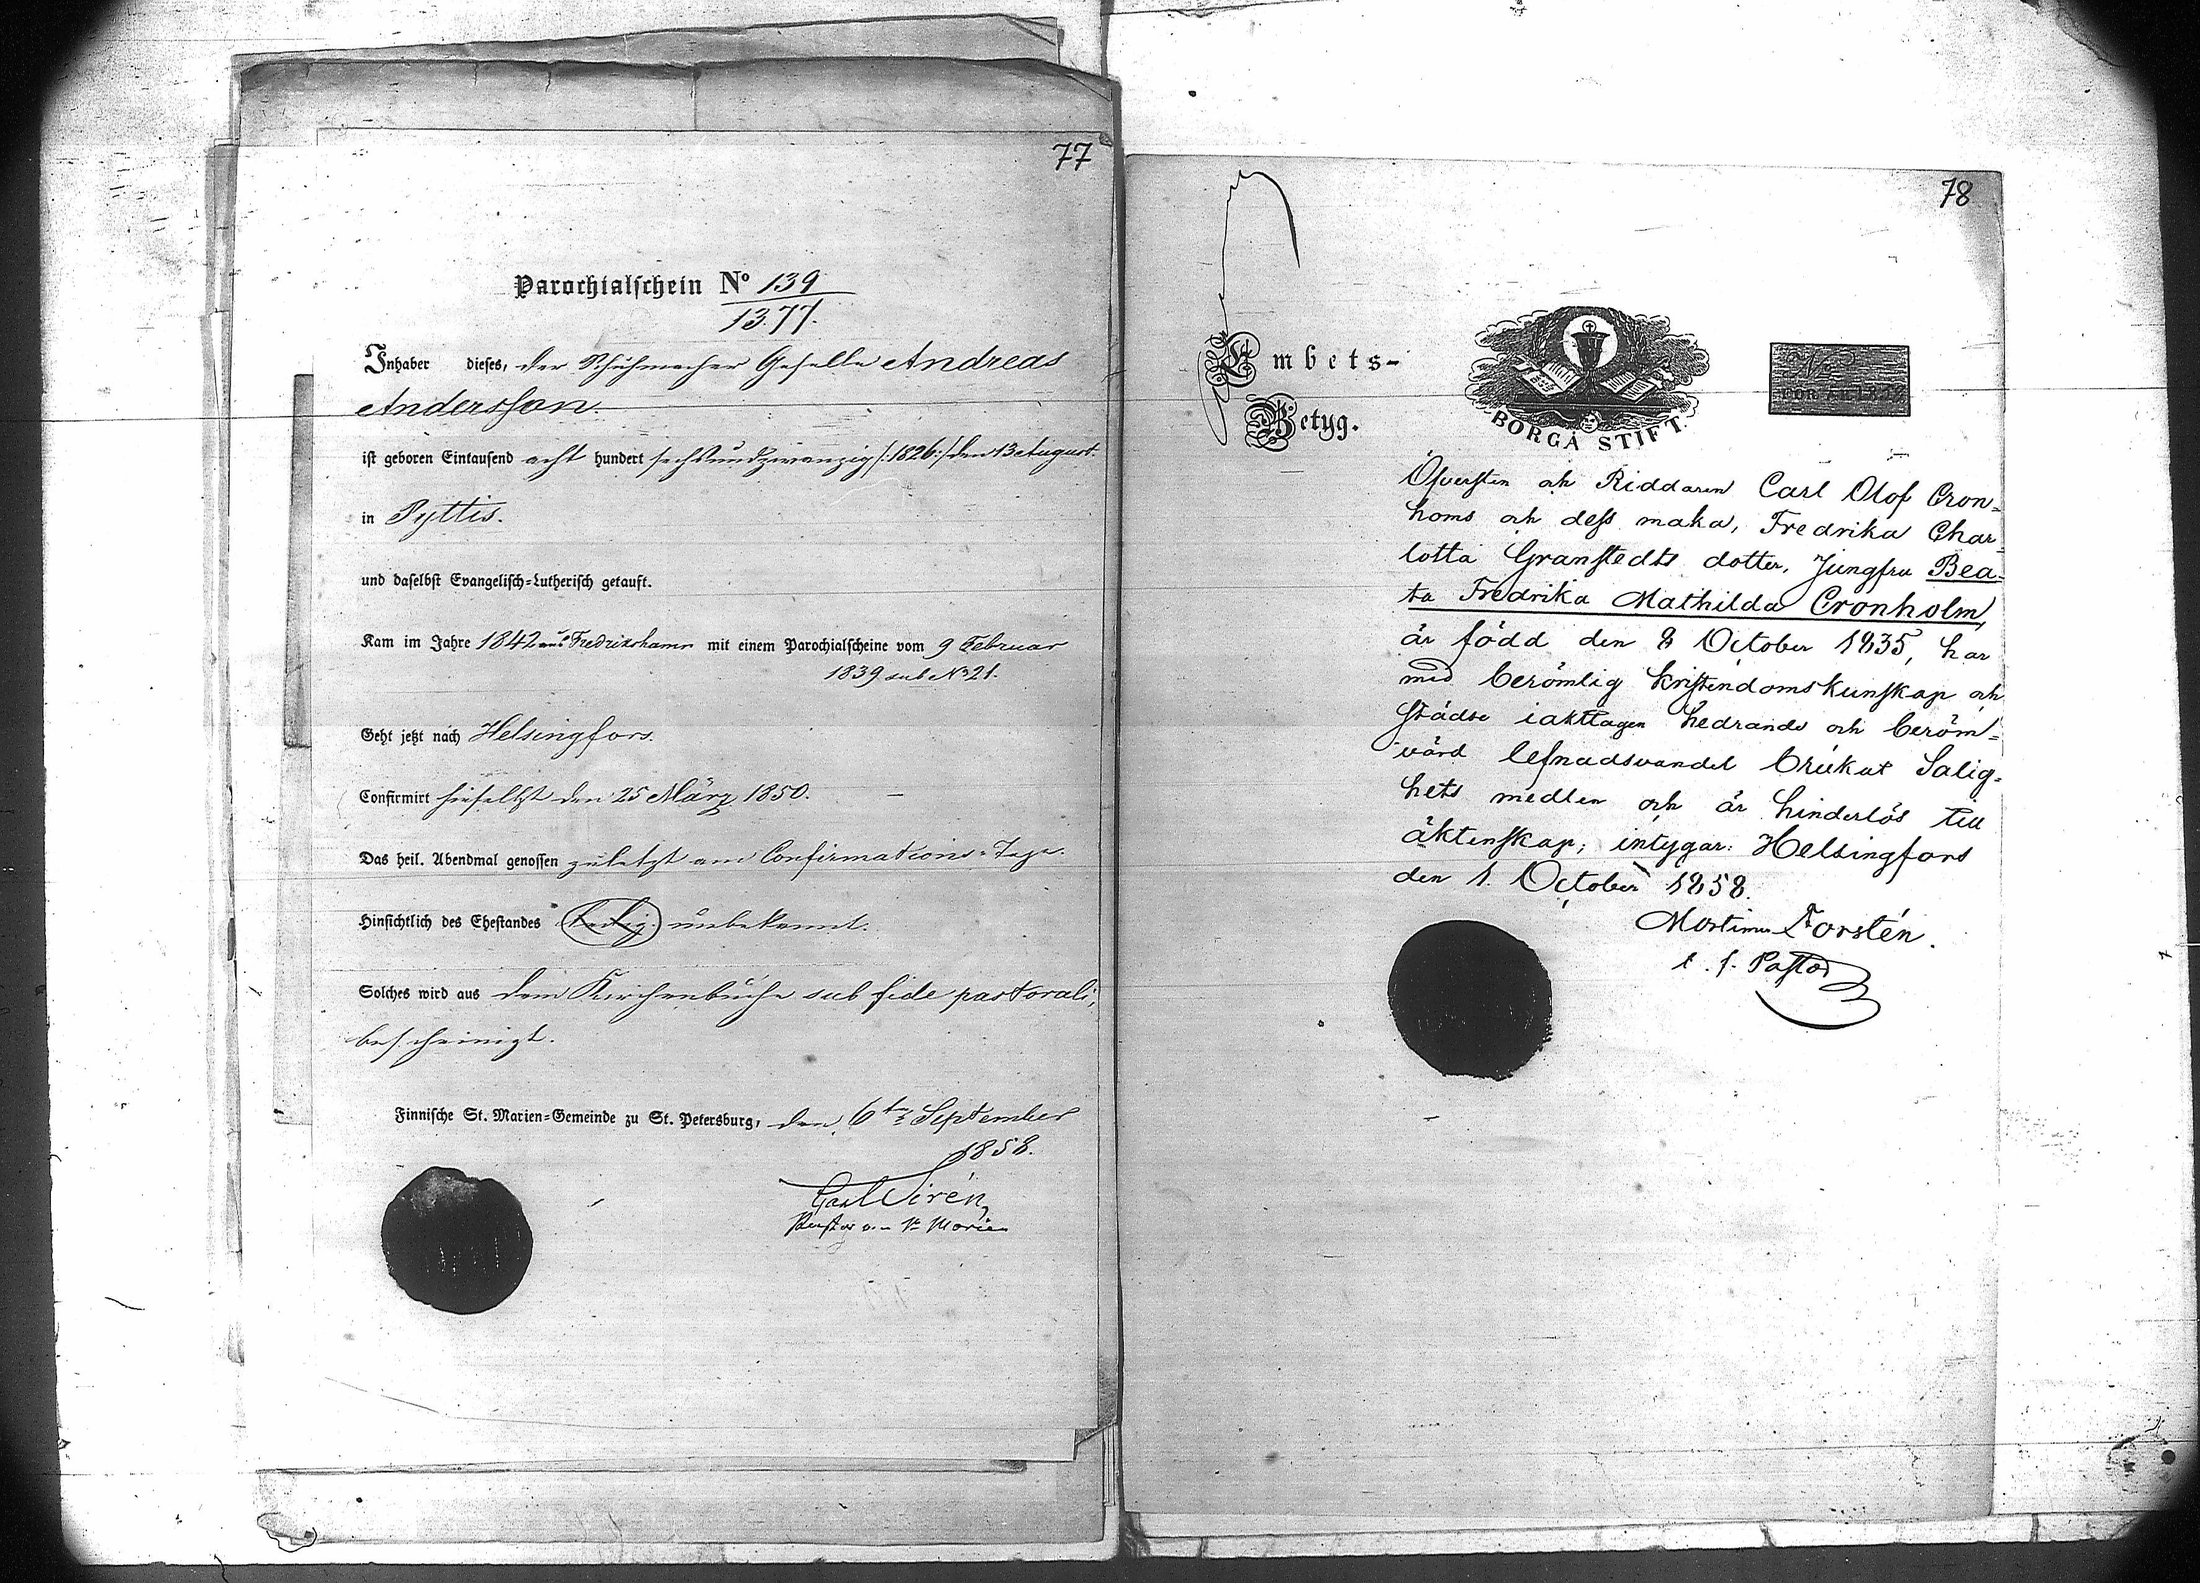 77
Parochialschein No 139
1377.
Inhaber dieses, der Schuhmacher Geselle Andreas
Andersson.
ist geboren Eintausend acht hundert sechsundzwanzig /:1826:/ den 13 August.
in Pyttis.
und daselbst Evangelisch-Lutherisch getauft.
Kam im Jahre 1842 aus Fredrikshamn mit einem Parochialscheine vom 9 Februar
1839 sub No 21.
Geht jetzt nach Helsingfors.
Confirmirt hieselbst den 25 März 1850.
Das heil. Abendmal genossen zuletzt am Confirmations-Tage.
Hinsichtlich des Ehestandes ledig unbekannt.
Solches wird aus dem Kirchenbuche sub fide pastorali,
bescheinigt.
Finnische St. Marien-Gemeinde zu St. Petersburg, den 6ten September
1858.
Carl Sirén,
Pastor an St Marien
78
Embets-
Betyg.
BORGÅ STIFT.
No
Öfversten och Riddaren Carl Olof Cron-
homs och dess maka, Fredrika Char-
lotta Granstedts dotter, Jungfru Bea-
ta Fredrika Mathilda Cronholm,
är född den 8 October 1835, har
med berömlig kristendomskunskap och
städse iakttagen hedrande och beröm-
värd lefnadsvandel brukat Salig-
hets medlen och är hinderlös till
äktenskap; intygar: Helsingfors
den 1. October 1858.
Mortimer Forstén.
t. f. Pastor